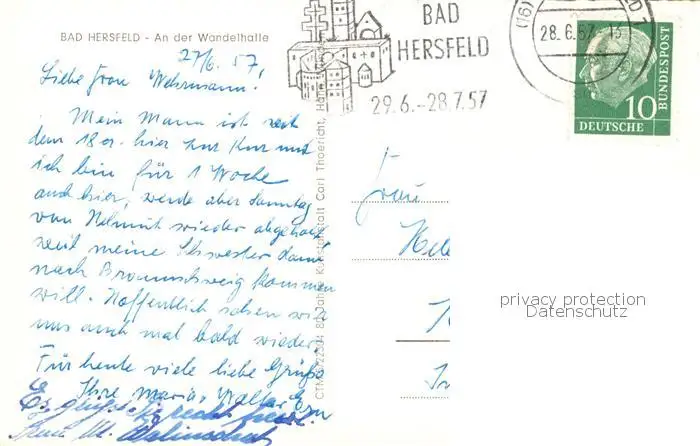 BAD HERSFELD - An der Wandelhalle
27/6. 57.
Liebe Frau Wehrmann!
Mein Mann ist seit
dem 18er. hier zur Kur und
ich bin für 1 Woche
auch hier, werde aber Sonntag
von Helmut wieder abgeholt
weil meine Schwester dann
nach Braunschweig kommen
will. Hoffentlich sehen wir
uns auch mal bald wieder.
Für heute viele liebe Grüße
Ihre Maria
Es grüßt Sie recht
BAD
HERSFELD
29.6.-28.7.57
(16)
28.6.57-13
10
DEUTSCHE
BUNDESPOST
Kunstanstalt Carl Thoericht, Hann.
80 Jahre
Frau
privacy protection
Datenschutz